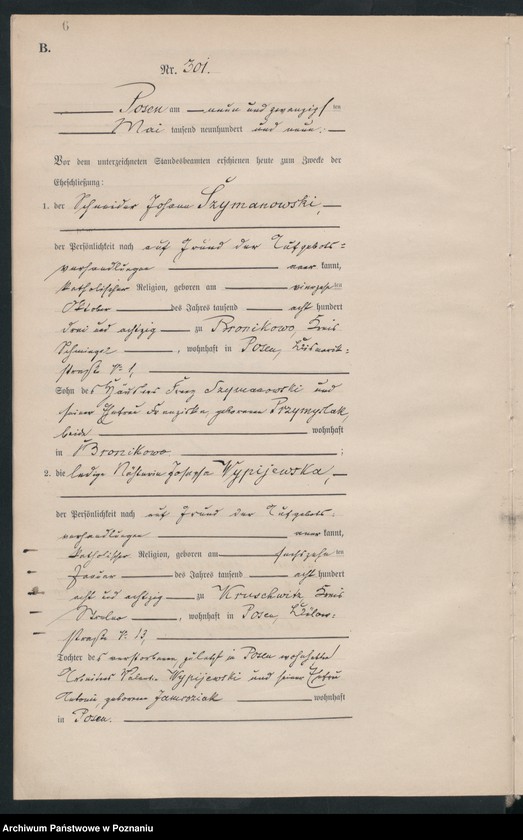 6
B.
Nr. 301.
Posen am neun und zwanzigsten
Mai tausend neunhundert und neun.
Vor dem unterzeichneten Standesbeamten erschienen heute zum Zwecke der
Eheschließung:
1. der Schneider Johann Szymanowski,
der Persönlichkeit nach auf Grund der Aufgebots-
verhandlungen aner kannt,
katholischer Religion, geboren am vierzehnten
Oktober des Jahres tausend acht hundert
drei und achtzig zu Bronikowo, Kreis
Schmiegel, wohnhaft in Posen, Bismarck-
straße No 1,
Sohn des Häuslers Franz Szymanowski und
seiner Ehefrau Franziska, geborenen Przymyslak,
beide wohnhaft
in Bronikowo ;
2. die ledige Näherin Josepha Wypijewska,
der Persönlichkeit nach auf Grund der Aufgebots-
verhandlungen aner kannt,
katholischer Religion, geboren am sechszehnten
Januar des Jahres tausend acht hundert
acht und achtzig zu Kruschwitz, Kreis
Strelno, wohnhaft in Posen,
straße No 13,
Tochter des verstorbenen, zuletzt in Posen wohnhaften
Arbeiters Valentin Wypijewski und seiner Ehefrau
Antonie, geborenen Jamroziak wohnhaft
in Posen.
Archiwum Państwowe w Poznaniu